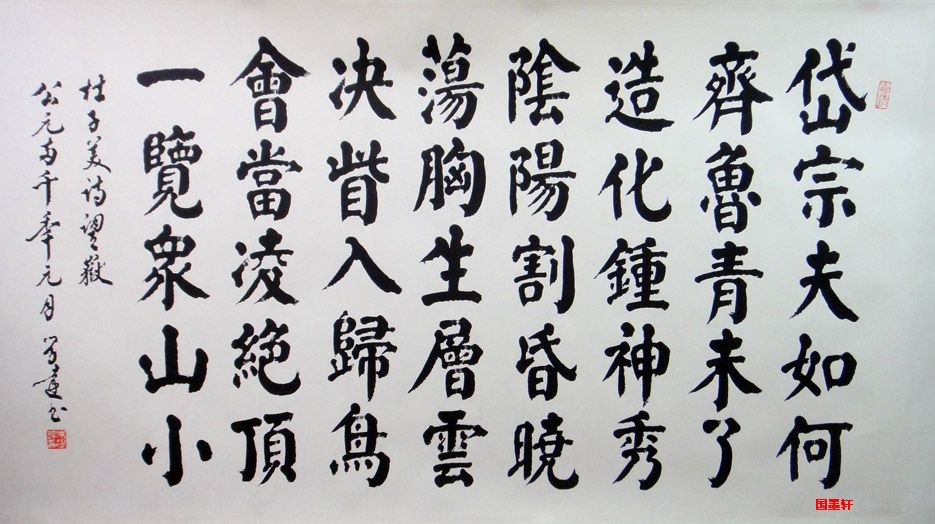 岱宗夫如何
齊魯青未了
造化鍾神秀
陰陽割昏曉
蕩胸生層雲
决眥入歸鳥
會當凌絕頂
一覽衆山小
杜子美诗望嶽
公元两千年元月
国墨轩